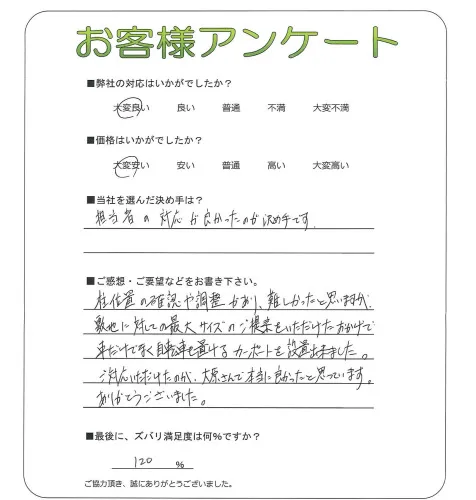 お客様アンケート
■弊社の対応はいかがでしたか？
大変良い 良い 普通 不満 大変不満
■価格はいかがでしたか？
大変安い 安い 普通 高い 大変高い
■当社を選んだ決め手は？
担当者の対応が良かったのが決め手です。
■ご感想・ご要望などをお書き下さい。
柱位置の確認や調整があり、難しかったと思いますが、
敷地に対しての最大サイズのご提案をいただけたおかげで
車だけでなく自転車も置けるカーポートを設置出来ました。
ご対応いただけたのが、大原さんで本当に良かったと思っています。
ありがとうございました。
■最後に、ズバリ満足度は何%ですか？
120 %
ご協力頂き、誠にありがとうございました。